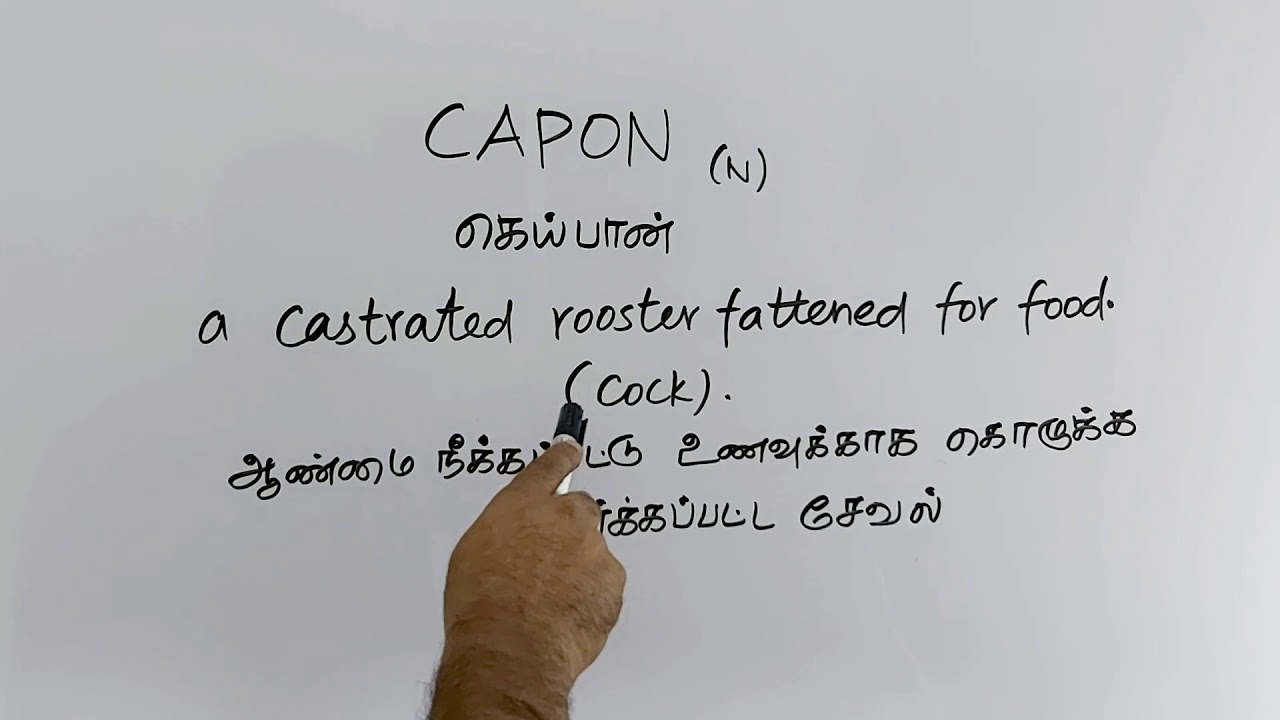 CAPON (N)
கெய்பான்
a castrated rooster fattened for food.
(cock).
ஆண்மை உணவுக்காக கொழுக்க
சேவல்